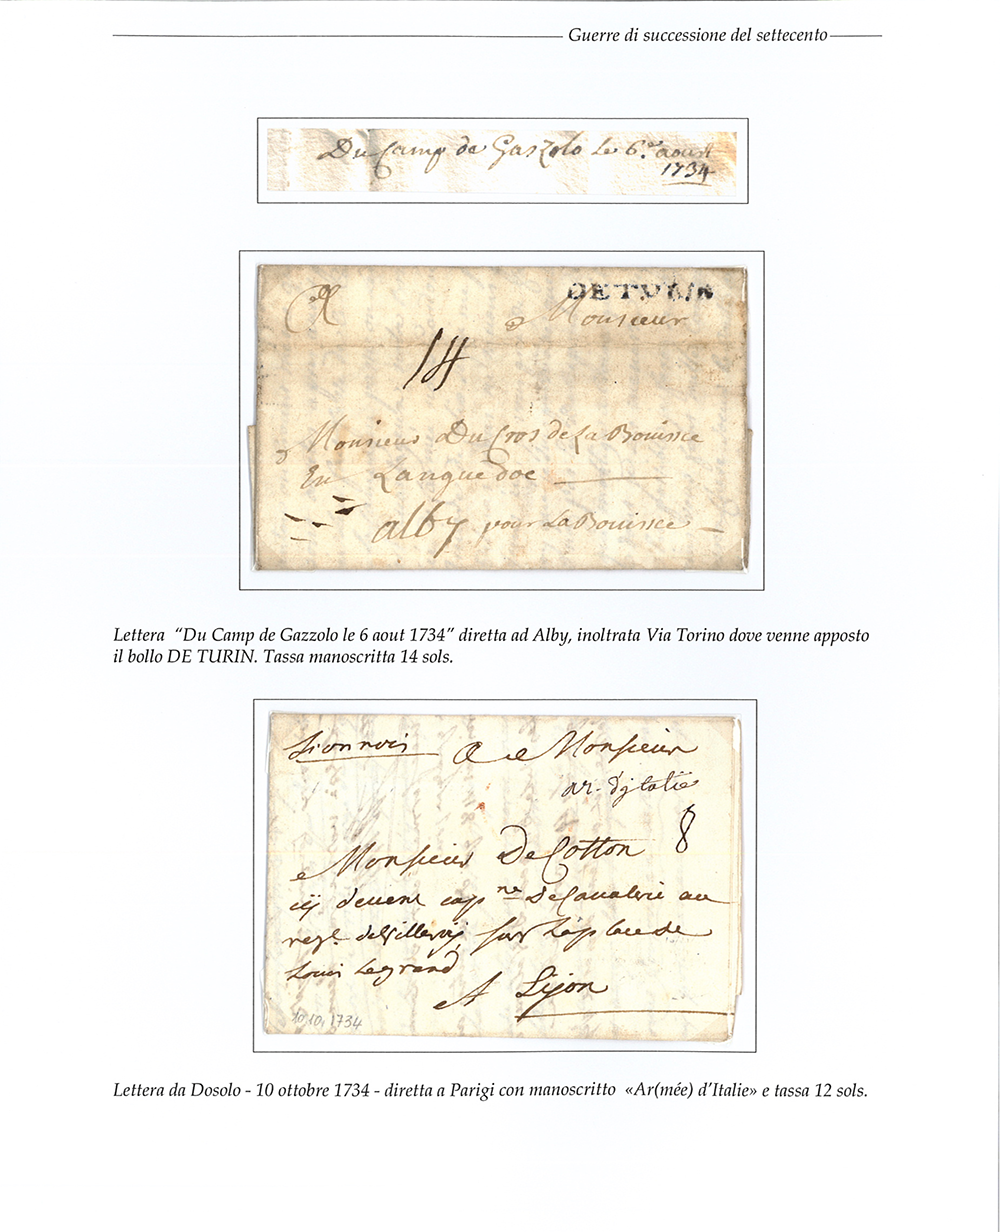 Guerre di successione del settecento
Du Camp de Gazolo le 6.e aoust
1734
DE TURIN
A
Monsieur
14
Monsieur Du Cros de La Bouisse
En Languedoc
alby pour La Bouisse
Lettera “Du Camp de Gazzolo le 6 aout 1734” diretta ad Alby, inoltrata Via Torino dove venne apposto
il bollo DE TURIN. Tassa manoscritta 14 sols.
Lionnois A Monsieur
ar. d'jtalie
8
Monsieur De Cotton
cy devent cap ne De Cavalerie au
regt. de villeroy, sur la place de
Louis Le grand
A Lijon
10.10.1734
Lettera da Dosolo - 10 ottobre 1734 - diretta a Parigi con manoscritto «Ar(mée) d’Italie» e tassa 12 sols.